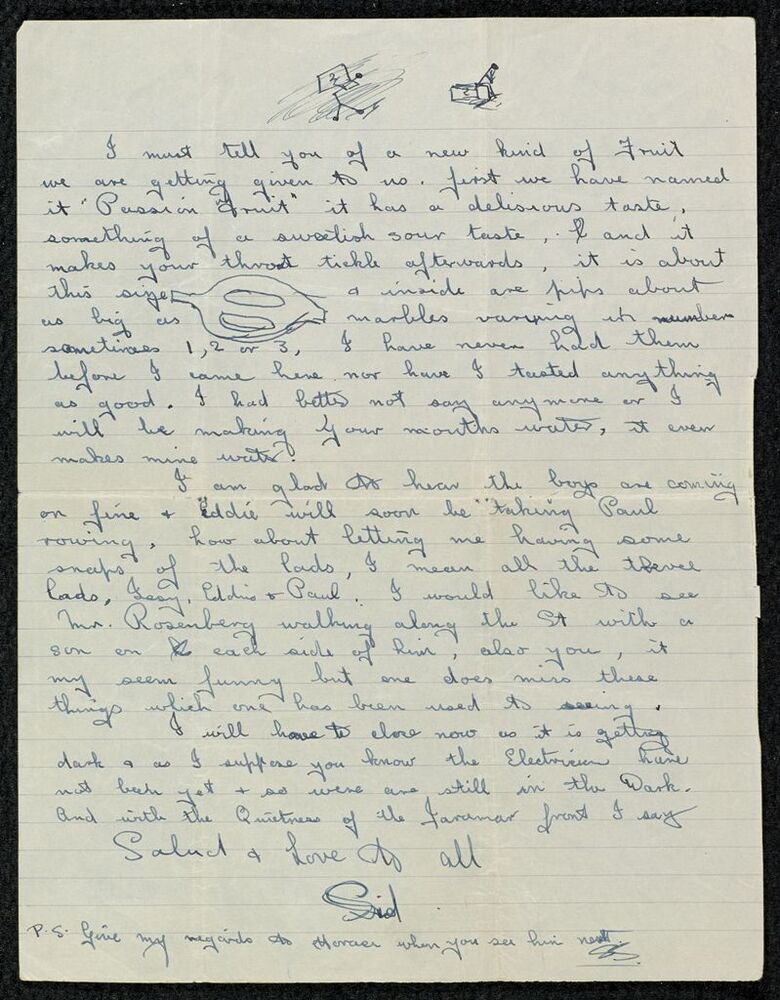 2 2
I must tell you of a new kind of Fruit
we are getting given to us. first we have named
it "Passion Fruit" it has a delisious taste,
something of a sweetish sour taste, and it
makes your throat tickle afterwards, it is about
this size & inside are pips about
as big as marbles varying in number
sometimes 1, 2 or 3, I have never had them
before I came here nor have I tasted anything
as good. I had better not say anymore or I
will be making your mouths water, it even
makes mine water.
I am glad to hear the boys are coming
on fine & Eddie will soon be "taking Paul
rowing, how about letting me having some
snaps of the lads, I mean all the three
lads, Issy, Eddie & Paul. I would like to see
Mr. Rosenberg walking along the St with a
son on each side of him, also you, it
my seem funny but one does miss these
things which one has been used to seeing.
I will have to close now as it is getting
dark & as I suppose you know the Electricien have
not been yet & so were are still in the Dark.
And with the Quietness of the Jaramar front I say
Salud & Love to all
Sid
P.S. Give my regards to Horace when you see him next.